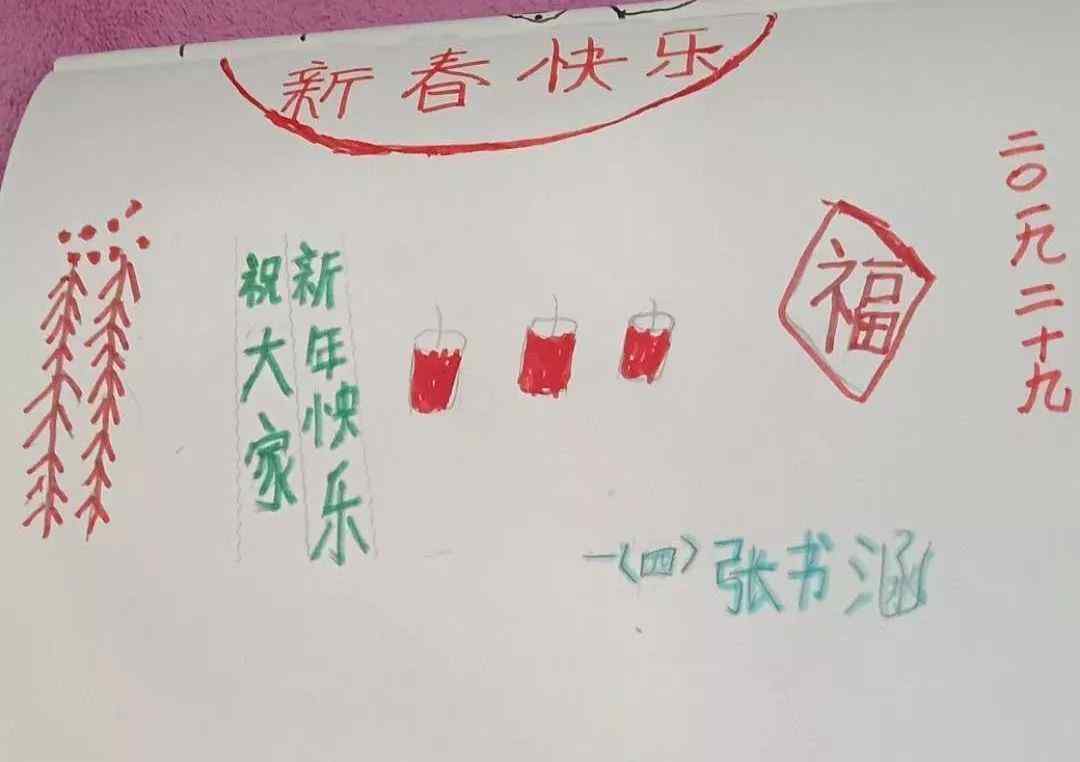 新春快乐
祝大家
新年快乐
福
二〇一九二十九
一(四)张书涵